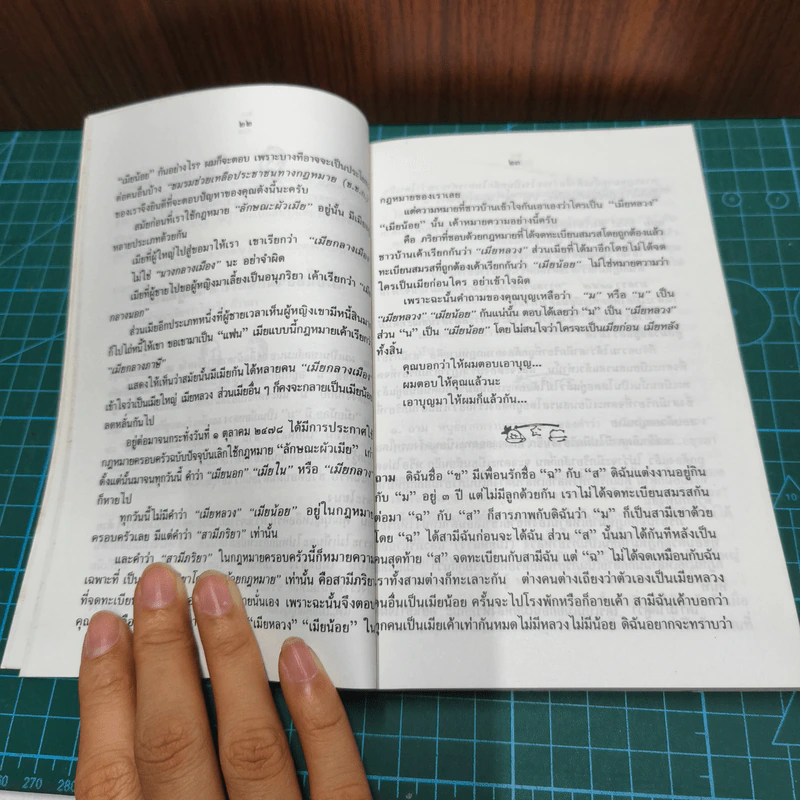 ๒๒
"เมียน้อย" กันอย่างไร? ผมก็จะตอบ เพราะบางทีอาจจะเป็นประโย
ต่อคนอื่นบ้าง "ชมรมช่วยเหลือประชาชนทางกฎหมาย (ช.ช.ก.)
ของเราจึงยินดีที่จะตอบปัญหาของคุณดังนี้นะครับ
สมัยก่อนที่เราใช้กฎหมาย "ลักษณะผัวเมีย" อยู่นั้น มีเมีย
หลายประเภทด้วยกัน
เมียที่ผู้ใหญ่ไปสู่ขอมาให้เรา เขาเรียกว่า "เมียกลางเมือง"
ไม่ใช่ "นางกลางเมือง" นะ อย่าจำผิด
เมียที่ผู้ชายไปขอผู้หญิงมาเลี้ยงเป็นอนุภริยา เค้าเรียกว่า "เมี
กลางนอก"
ส่วนเมียอีกประเภทหนึ่งที่ผู้ชายเวลาเห็นผู้หญิงเขามีหนี้สินมา
ก็ไปไถ่หนี้ให้เขา ขอเขามาเป็น "แฟน" เมียแบบนี้กฎหมายเค้าเรียก
"เมียกลางทาษี"
แสดงให้เห็นว่าสมัยนั้นมีเมียกันได้หลายคน "เมียกลางเมือง"
เข้าใจว่าเป็นเมียใหญ่ เมียหลวง ส่วนเมียอื่น ๆ ก็คงจะกลายเป็นเมียน้อย
ลดหลั่นกันไป
อยู่ต่อมาจนกระทั่งวันที่ ๑ ตุลาคม ๒๔๗๘ ได้มีการประกาศใช้
กฎหมายครอบครัวฉบับปัจจุบันเลิกใช้กฎหมาย "ลักษณะผัวเมีย" เก่า
ตั้งแต่นั้นมาจนทุกวันนี้ คำว่า "เมียนอก" "เมียใน" หรือ "เมียกลาง"
ก็หายไป
ทุกวันนี้ไม่มีคำว่า "เมียหลวง" "เมียน้อย" อยู่ในกฎหมาย
ครอบครัวเลย มีแต่คำว่า "สามีภริยา" เท่านั้น
และคำว่า "สามีภริยา" ในกฎหมายครอบครัวนี้ก็หมายความ
เฉพาะที่ เป็น กฎหมาย" เท่านั้น คือสามีภริยา
ที่จดทะเบียน ยนั่นเอง เพราะฉะนั้นจึงตอบ
"เมียหลวง" "เมียน้อย" ใน
๒๓
กฎหมายของเราเลย
แต่ความหมายที่ชาวบ้านเข้าใจกันเอาเองว่าใครเป็น "เมียหลวง"
"เมียน้อย" นั้น เค้าหมายความอย่างนี้ครับ
คือ ภริยาที่ชอบด้วยกฎหมายที่ได้จดทะเบียนสมรสโดยถูกต้องแล้ว
ชาวบ้านเค้าเรียกกันว่า "เมียหลวง" ส่วนเมียที่ได้มาอีกโดยไม่ได้จด
ทะเบียนสมรสที่ถูกต้องเค้าเรียกกันว่า "เมียน้อย" ไม่ใช่หมายความว่า
ใครเป็นเมียก่อนใคร อย่าเข้าใจผิด
เพราะฉะนั้นคำถามของคุณบุญเหลือว่า "ม" หรือ "น" เป็น
"เมียหลวง" "เมียน้อย" กันแน่นั้น ตอบได้เลยว่า "ม" เป็น "เมียหลวง"
ส่วน "น" เป็น "เมียน้อย" โดยไม่สนใจว่าใครจะเป็นเมียก่อน เมียหลัง
ทั้งสิ้น
คุณบอกว่าให้ผมตอบเอาบุญ...
ผมตอบให้คุณแล้วนะ
เอาบุญมาให้ผมก็แล้วกัน...
ถาม ดิฉันชื่อ "ข" มีเพื่อนรักชื่อ "ฉ" กับ "ส" ดิฉันแต่งงานอยู่กิน
กับ "ม" อยู่ ๓ ปี แต่ไม่มีลูกด้วยกัน เราไม่ได้จดทะเบียนสมรสกัน
ต่อมา "ฉ" กับ "ส" ก็สารภาพกับดิฉันว่า "ม" ก็เป็นสามีเขาด้วย
โดย "ฉ" ได้สามีฉันก่อนจะได้ฉัน ส่วน "ส" นั้นมาได้กันทีหลังเป็น
คนสุดท้าย "ส" จดทะเบียนกับสามีฉัน แต่ "ฉ" ไม่ได้จดเหมือนกับฉัน
เราทั้งสามต่างก็ทะเลาะกัน ต่างคนต่างเถียงว่าตัวเองเป็นเมียหลวง
คนอื่นเป็นเมียน้อย ครั้นจะไปโรงพักหรือก็อายเค้า สามีฉันเค้าบอกว่า
ทุกคนเป็นเมียเค้าเท่ากันหมดไม่มีหลวงไม่มีน้อย ดิฉันอยากจะทราบว่า
260 270 280